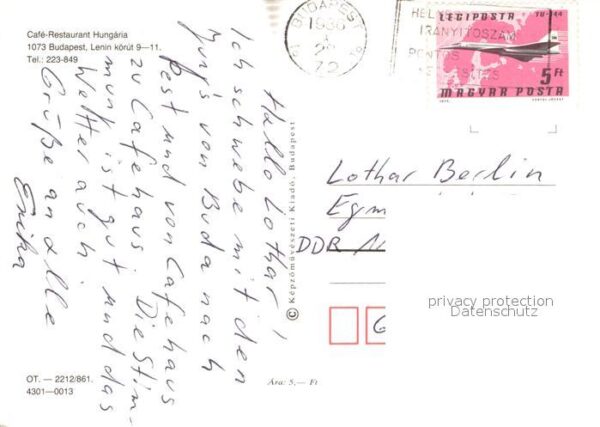 Café-Restaurant Hungária
1073 Budapest, Lenin körút 9—11.
Tel.: 223-849
BUDAPEST
72
HEL
IRÁNYÍTÓSZÁM
PONTOS
LÉGIPOSTA TU-144
5 Ft
MAGYAR POSTA
Hallo Lothar,
Ich schwebe mit den
Jung's von Buda nach
Pest und von Cafehaus
zu Cafehaus. Die Stim-
mun ist gut und das
Wetter auch.
Grüße an alle
Erika
© Képzőművészeti Kiadó, Budapest
Lothar Berlin
Egm
DDR
privacy protection
Datenschutz
OT. — 2212/861.
4301—0013
Ára: 5,— Ft